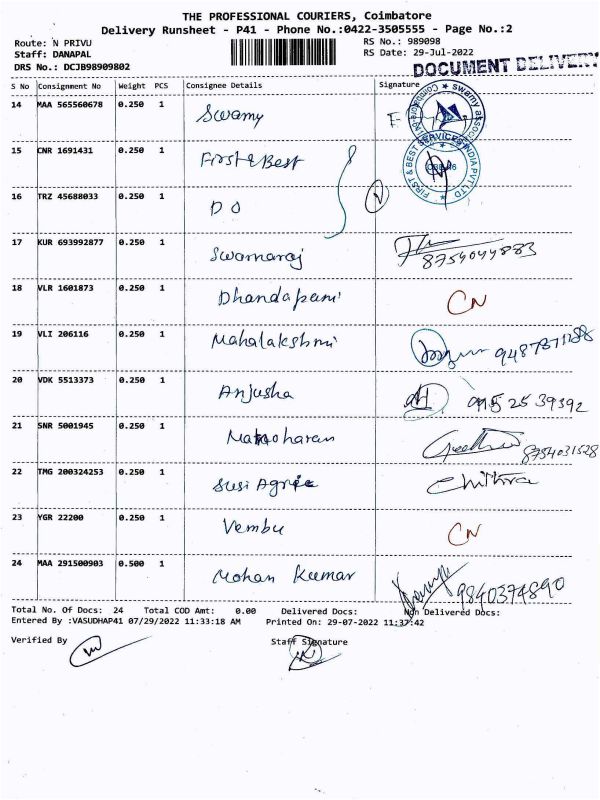 THE PROFESSIONAL COURIERS, Coimbatore
Delivery Runsheet - P41 - Phone No.:0422-3505555 - Page No.:2
Route: N PRIVU RS No.: 989098
Staff: DANAPAL RS Date: 29-Jul-2022
DRS No.: DCJB98909802 DOCUMENT DELIVERY
S No Consignment No Weight PCS Consignee Details Signature
14 MAA 565560678 0.250 1 Swamy F
15 CNR 1691431 0.250 1 First & Best
FIRST & BEST SERVICES INDIA PVT LTD
16 TRZ 45688033 0.250 1 D O
17 KUR 693992877 0.250 1 Swarnaraj 8754044883
18 VLR 1601873 0.250 1 Dhandapani CN
19 VLI 206116 0.250 1 Mahalakshmi
20 VDK 5513373 0.250 1 Anjusha 9152539392
21 SNR 5001945 0.250 1 Manoharan Geetha 8754031528
22 TMG 200324253 0.250 1 Susi Agric Chithra
23 YGR 22200 0.250 1 Vembu CN
24 MAA 291500903 0.500 1 Mohan Kumar 9840374890
Total No. Of Docs: 24 Total COD Amt: 0.00 Delivered Docs: Non Delivered Docs:
Entered By :VASUDHAP41 07/29/2022 11:33:18 AM Printed On: 29-07-2022 11:37:42
Verified By Staff Signature